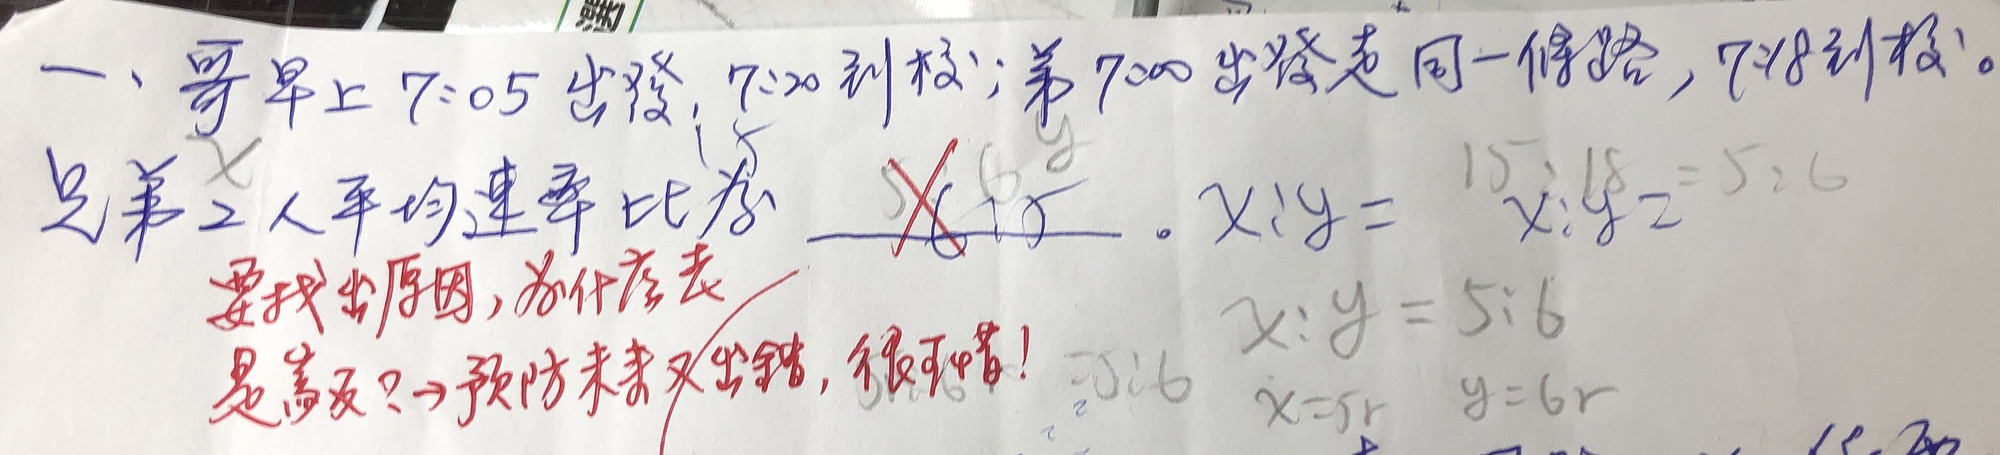 一、哥早上7:05出發,7:20到校;弟7:00出發走同一條路,7:18到校。
x 15 y 15:18=5:6
兄弟2人平均速率比為 5:6 。x:y= x:y=
要找出原因,為什麼
是 反?→預防未來又出錯,很可惜!
x:y=5:6
=5:6
x=5r y=6r